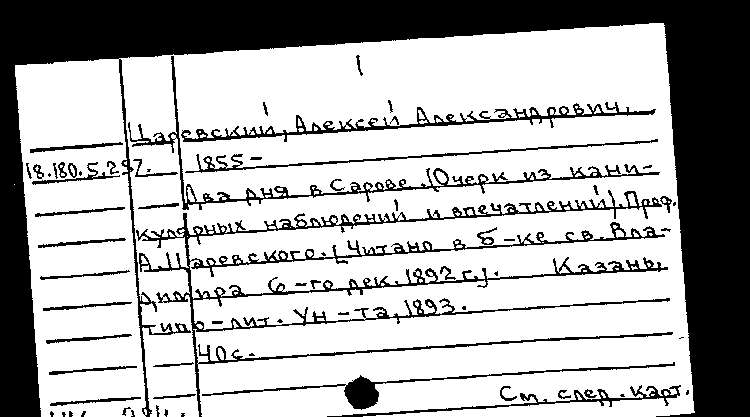 1
Царевский, Алексей Александрович,
18.180.5.297. 1855-
Два дня в Сарове. (Очерк из кани-
кулярных наблюдений и впечатлений). Проф.
А. Царевского. [Читано в б-ке св. Вла-
димира 6-го дек. 1892 г.]. Казань,
типо-лит. Ун-та, 1893.
40 с.
См. след. карт.